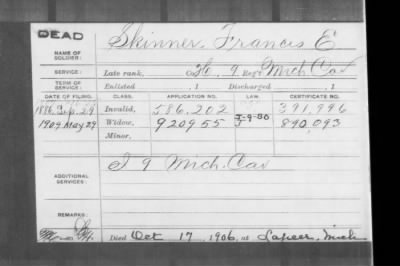 DEAD
NAME OF SOLDIER: Skinner, Francis E
SERVICE: Late rank, Co. H, 9 Reg't Mich Cav
TERM OF SERVICE: Enlisted , 1 Discharged , 1
DATE OF FILING. CLASS. APPLICATION NO. LAW. CERTIFICATE NO.
1886 Sep. 29 Invalid, 586.202 391,996
1907 May 29 Widow, 920955 J-9-80 890,093
Minor,
ADDITIONAL SERVICES: I 9 Mich. Cav
REMARKS:
Died Oct 17, 1906, at Lapeer, Mich